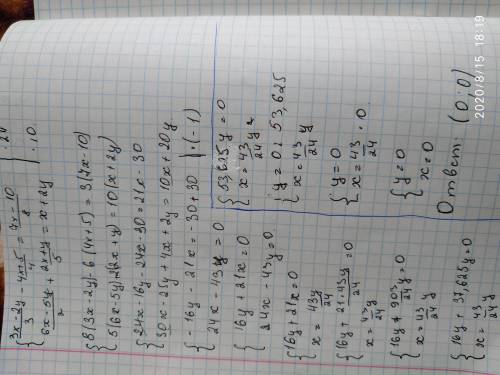 { (3x-2y)/3 - (4x+5)/4 = (7x-10)/8 | ·24
(6x-5y)/2 + (2x+y)/5 = x+2y | ·10
{ 8(3x-2y)-6(4x+5)=3(7x-10)
5(6x-5y)+2(2x+y)=10(x+2y)
{ 24x-16y-24x-30=21x-30
30x-25y+4x+2y=10x+20y
{ -16y-21x=-30+30 | :(-1)
24x-43y=0
{ 16y+21x=0
24x-43y=0
{ 16y+21x=0
x = 43y/24
{ 16y + 21·43y/24 = 0
x = 43/24 y
{ 16y + 903/24 y = 0
x = 43/24 y
{ 16y+37,625y=0
x = 43/24 y
{ 53,625y=0
x = 43/24 y
{ y=0:53,625
x = 43/24 y
{ y=0
x = 43/24 · 0
{ y=0
x=0
Ответ: (0;0)
2020/8/15 18:19